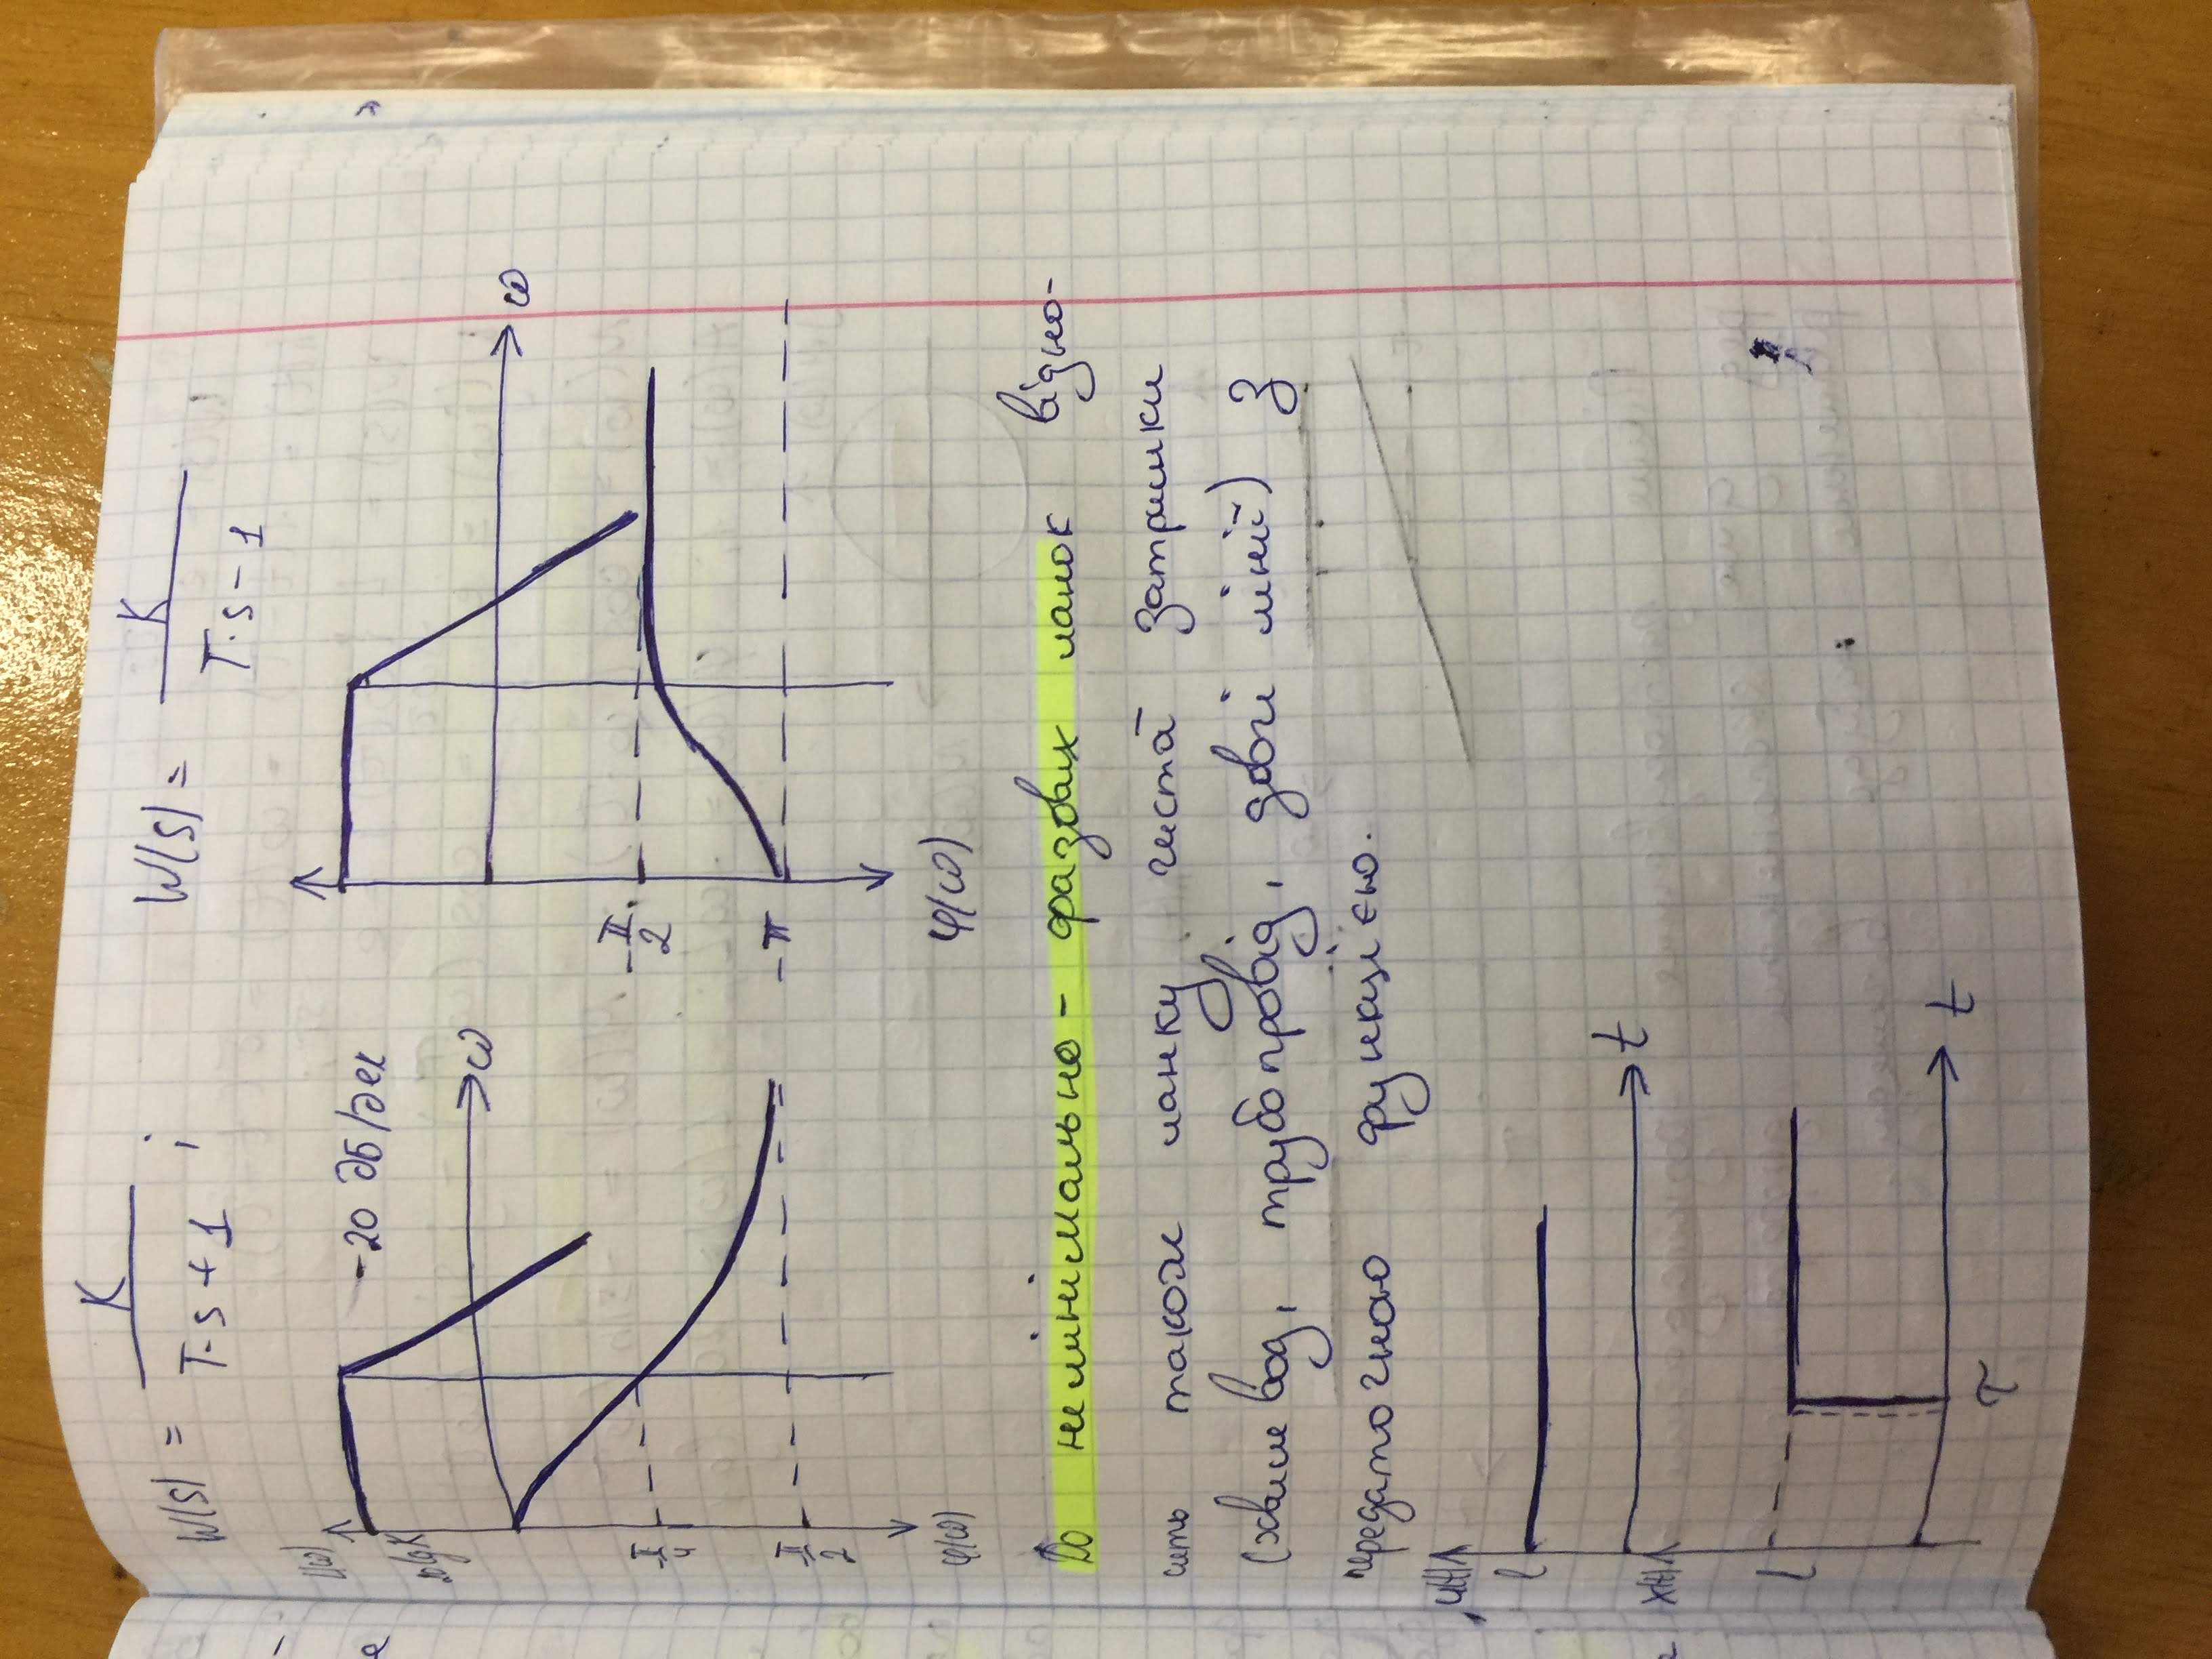 W(s) = K / (T·s + 1) ;
W(s) = K / (T·s - 1)
L(ω)
20lgK
-20 дБ/дек
ω
ω
π/4
π/2
-π/2
-π
φ(ω)
φ(ω)
До немінімально - фазових ланок відно-
сить також ланку чиста затримки
(хвилевод, трубопровід, довгі лінії) з
передаточною функцією.
u(t)
1
t
x(t)
1
t
τ